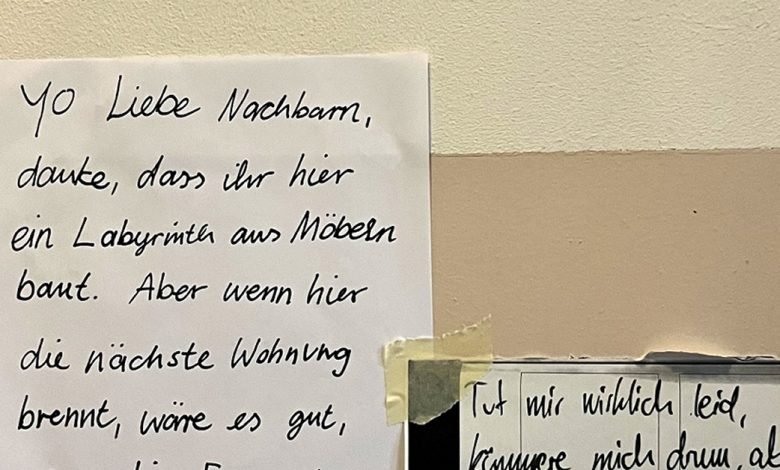 YO Liebe Nachbarn,
danke, dass ihr hier
ein Labyrinth aus Möbeln
baut. Aber wenn hier
die nächste Wohnung
brennt, wäre es gut,
Tut mir wirklich leid,
kümmere mich drum, ab